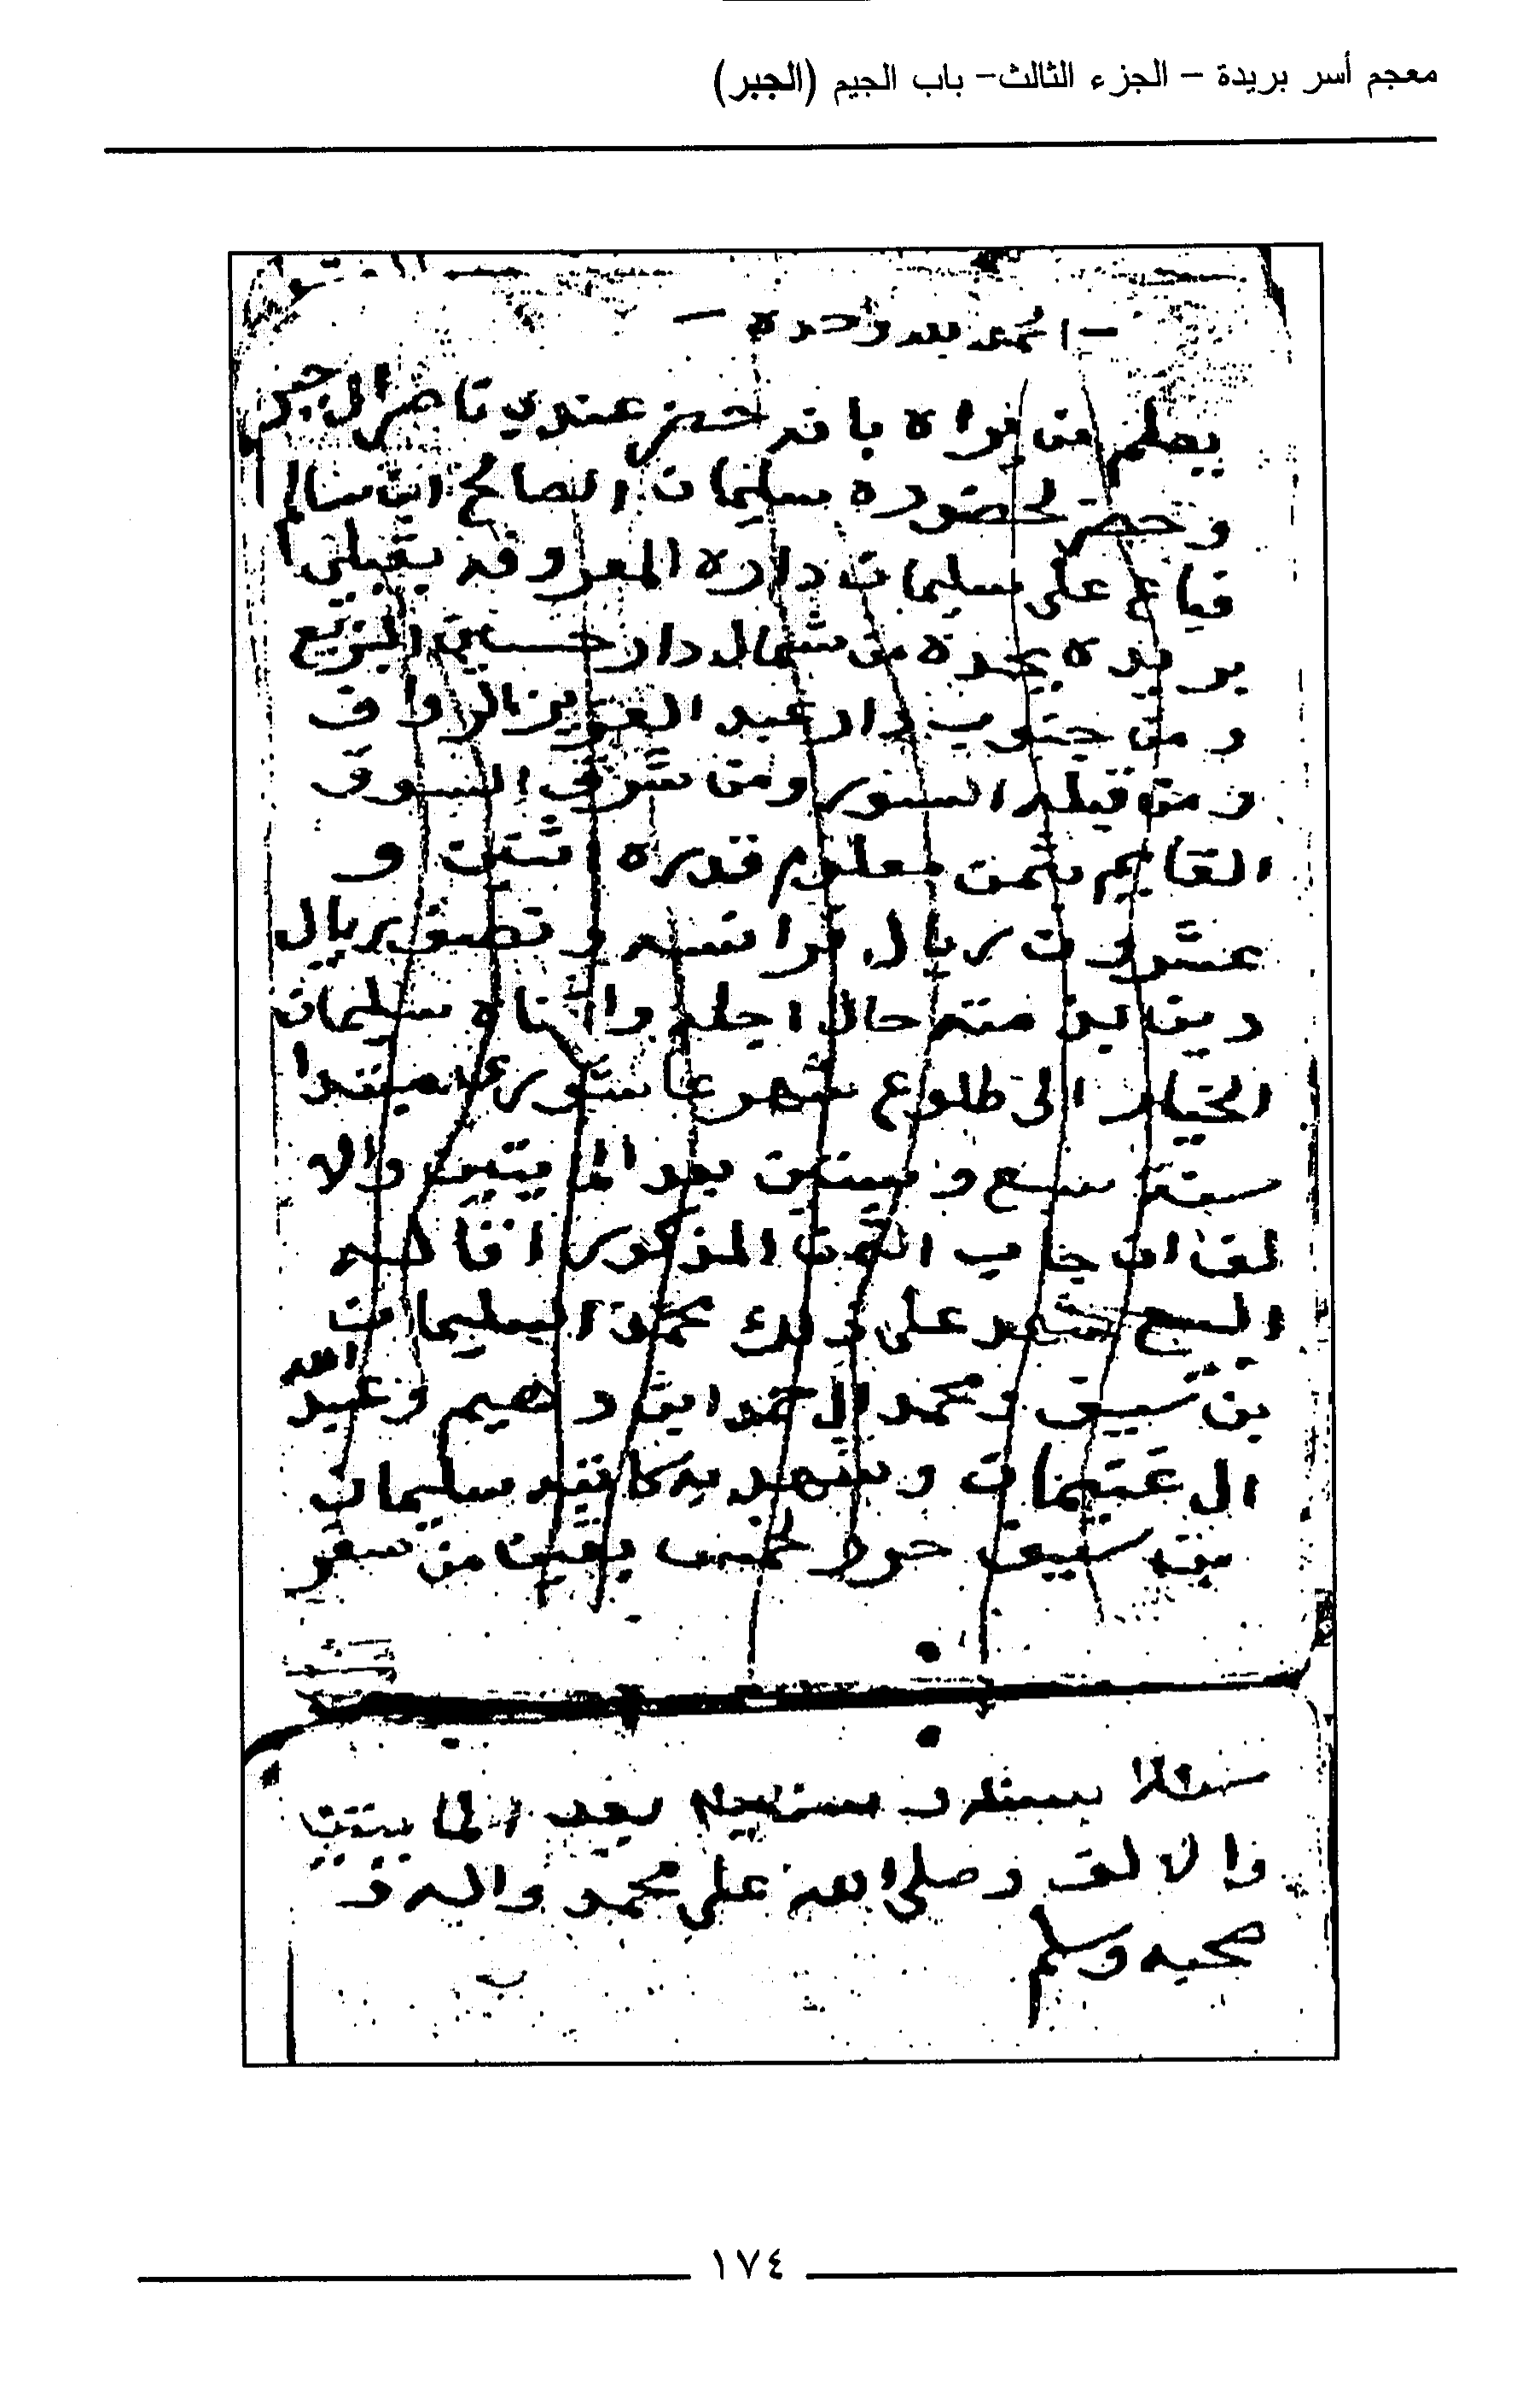 معجم أسر بريدة – الجزء الثالث– باب الجيم (الجبر)
– الحمد لله وحده –
يعلم من يراه بانه حضر عندي ناصر ال جبر
وحضر لحضوره سليمان الصالح ابن سالم
فباع على سليمان داره المعروفه بقبلي
بريده يحده من شمال دار حسين المزيع
ومن جنوب دار عبد العزيز الرواف
ومن قبله السور ومن شرق السوق
القايم بثمن معلوم قدره اثنين و
عشرون ريال فرانسه ونصف ريال
دين لمن منه حال اجله واعناه سليمان
الخيار الى طلوع شهر عاشوري مبتدا
سنة سبع وستين بعد الميتين والا
لف ان جاب الثمن المذكور افا له
البيع شهد على ذلك محمد السليمان
بن سيف ومحمد ال حمد ابن دهيم وعبد الله
ال عثيمان وشهد به كاتبه سليمان
بن سيف حرر لخمس بقين من صفر
سنة ستة وستين بعد المايتين
والالف وصلى الله على محمد واله و
صحبه وسلم
١٧٤